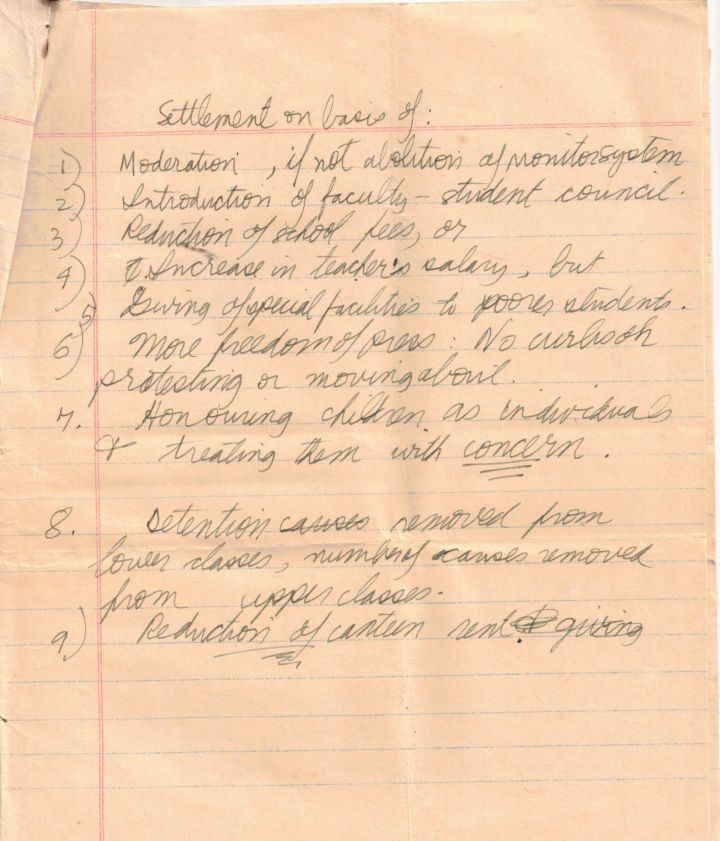 Settlement on basis of:
1) Moderation, if not abolition of monitor system
2) Introduction of faculty - student council.
3) Reduction of school fees, or
4) Increase in teacher's salary, but
5) Giving of special facilities to poorer students.
6) More freedom of press: No curbs on
protesting or moving about.
7. Honouring children as individuals
& treating them with concern.
8. Detention causes removed from
lower classes, number of causes removed
from upper classes.
9) Reduction of canteen rent giving